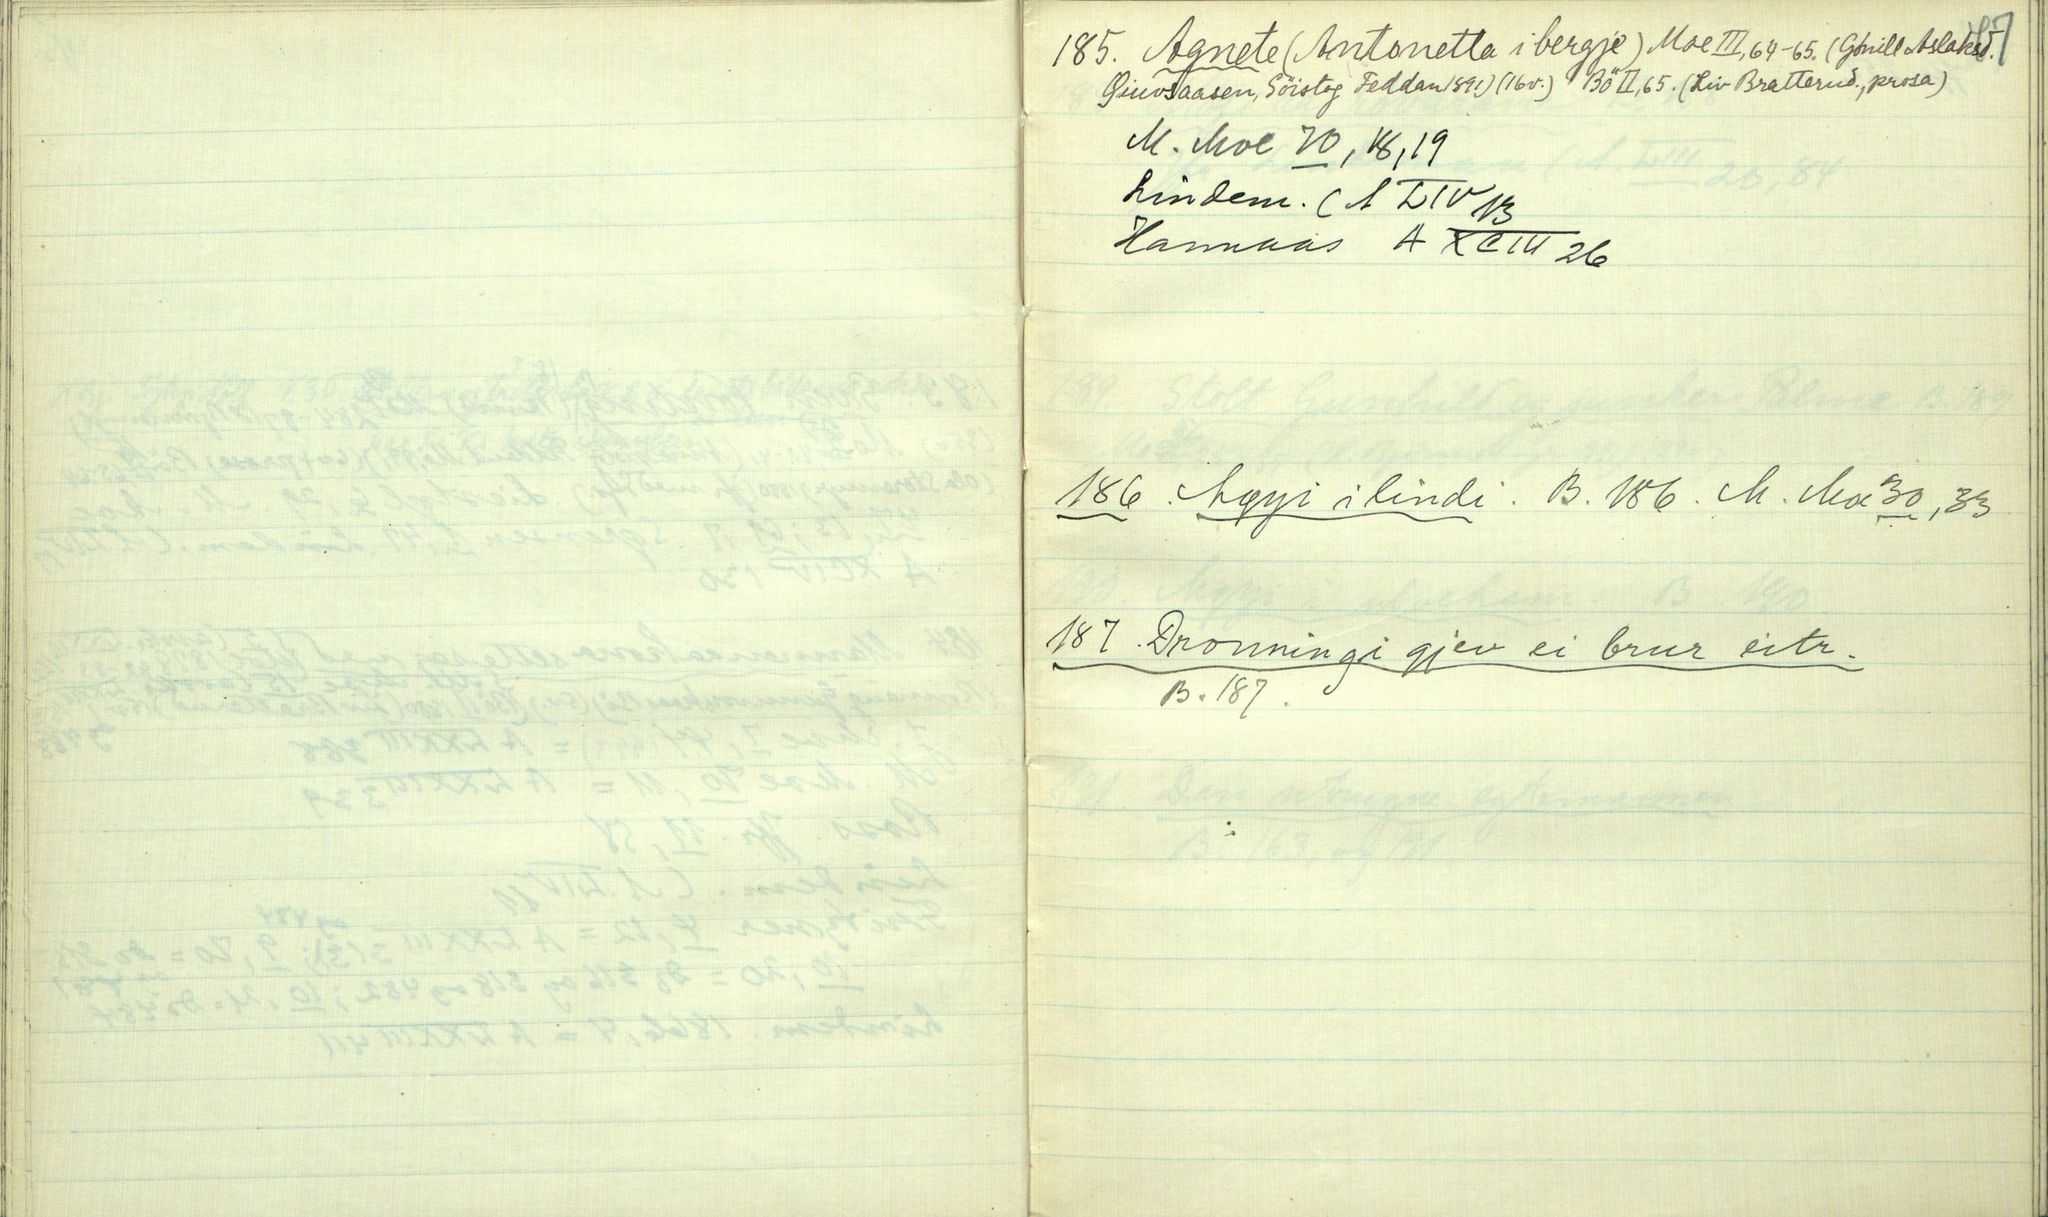 185. Agnete (Antonetta i bergje) Moe III, 64-65. (Gōnill Aslaksd.
Gjuvsaasen, Söistog Feddan 1891) (16v.) Bö II, 65. (Liv Bratterud., prosa)
M. Moe 70, 18, 19
Lindem. (A LIV 13
Hannaas A XCIII 26
186. Møyi i lindi. B. 186. M. Moe 30, 33
187. Dronningi gjev ei brur eitr.
B. 187.